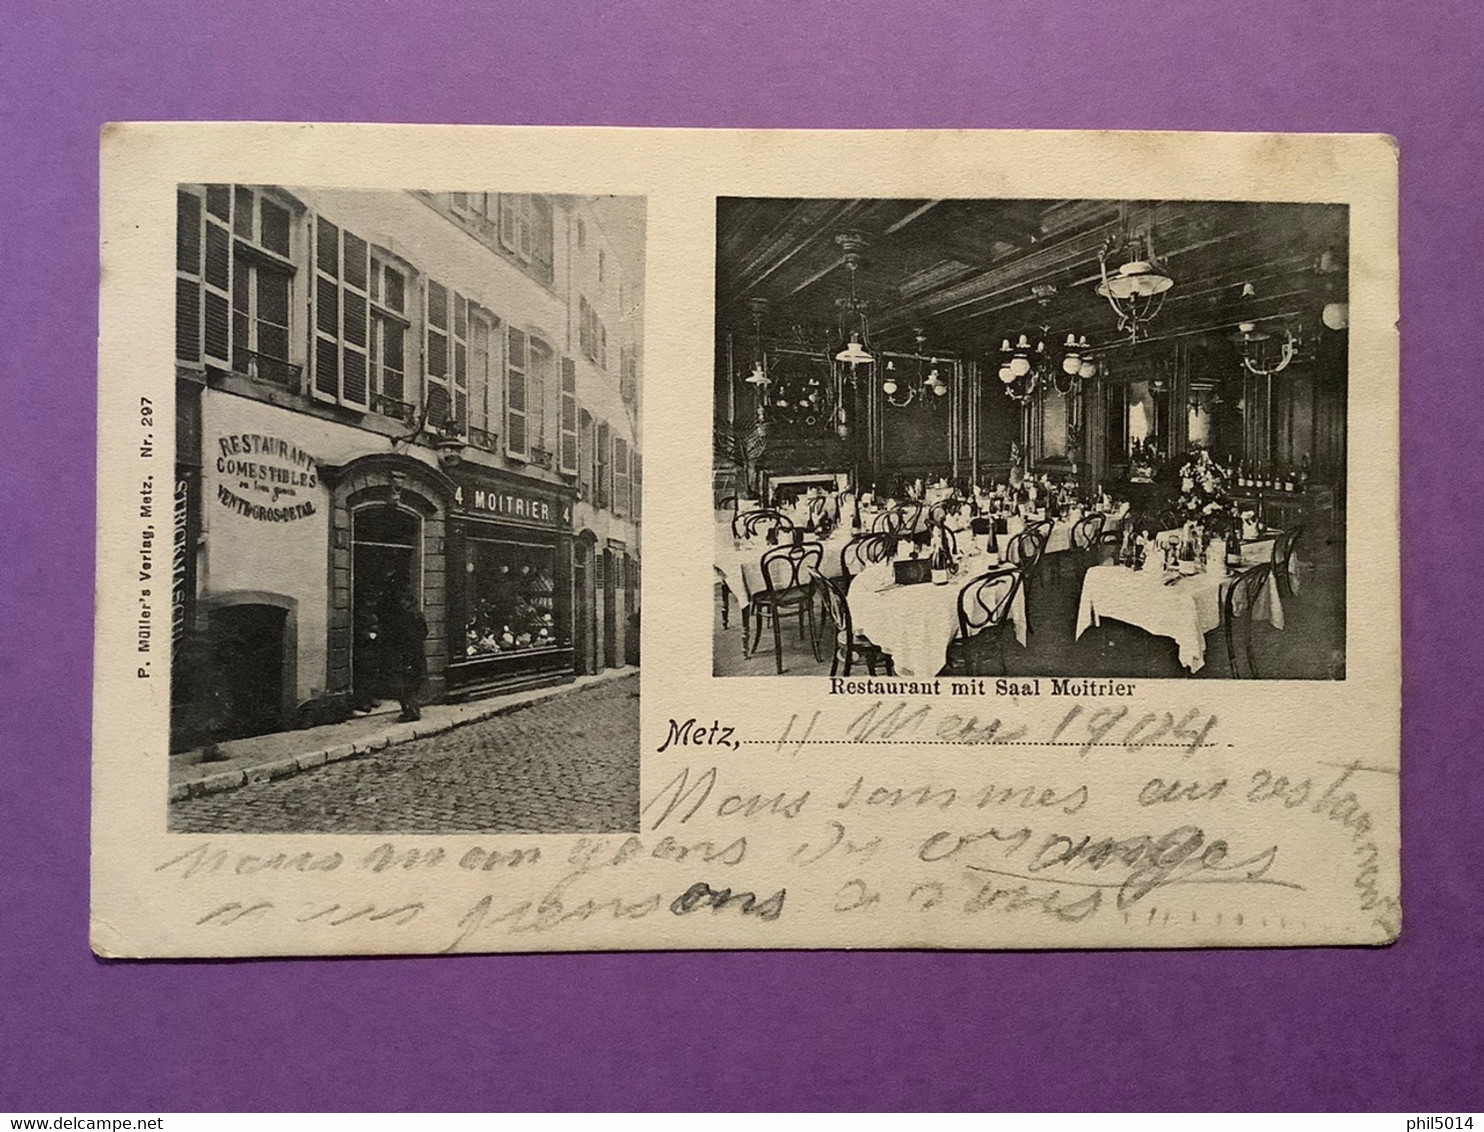 P. Müller's Verlag, Metz, Nr. 297
RESTAURANT
COMESTIBLES
VENTE GROS & DETAIL
4 MOITRIER 4
Restaurant mit Saal Moitrier
Metz, 11 Mai 1904
Nous sommes au restaurant
nous mangeons des oranges
nous pensons a vous
phil5014